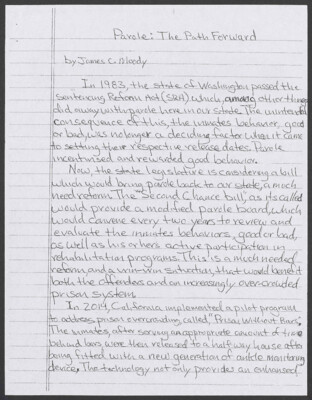 Parole: The Path Forward
by James C. Moody
In 1983, the state of Washington passed the
Sentencing Reform Act (SRA) which, among other things
did away with parole here in our state. The unintended
consequence of this, the inmates behavior, good
or bad, was no longer a deciding factor when it came
to setting their respective release dates. Parole
incentivised and rewarded good behavior.
Now, the state legislature is considering a bill
which would bring parole back to our state, a much
need reform. The "Second Chance bill", as its called
would provide a modified parole board, which
would convene every two years to review and
evaluate the inmates behaviors, good or bad,
as well as his or hers active participation in
rehabilitation programs. This is a much needed
reform, and a win-win situation, that would benefit
both the offenders and an increasingly over-crowded
prison system.
In 2014, California implemented a pilot program
to address prison overcrowding called, "Prison Without Bars".
The inmates, after serving an appropriate amount of time
behind bars were then released to a half way house after
being fitted with a new generation of ankle monitoring
device. The technology not only provides an enhanced